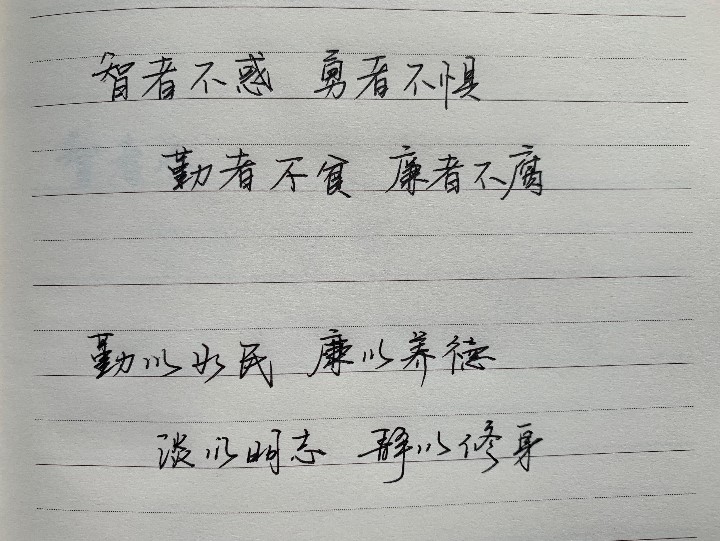 智者不惑 勇者不惧
勤者不贫 廉者不腐
勤以为民 廉以养德
淡以明志 静以修身